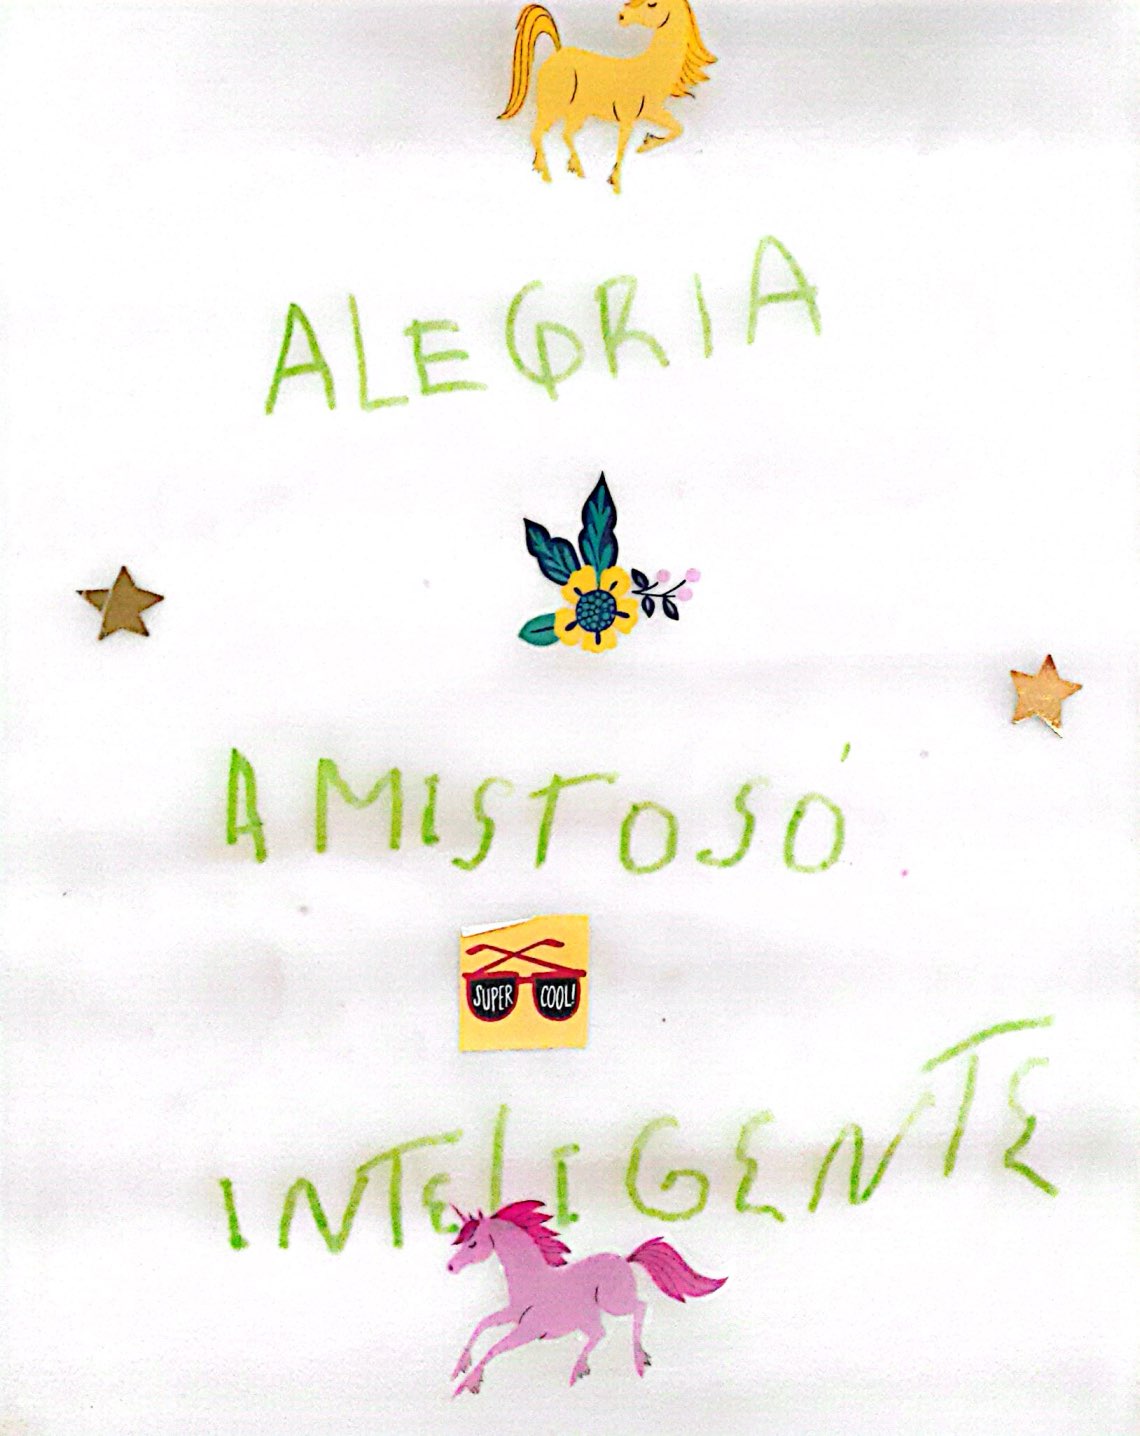 ALEGRIA
AMISTOSÓ
SUPER COOL!
INTELIGENTE